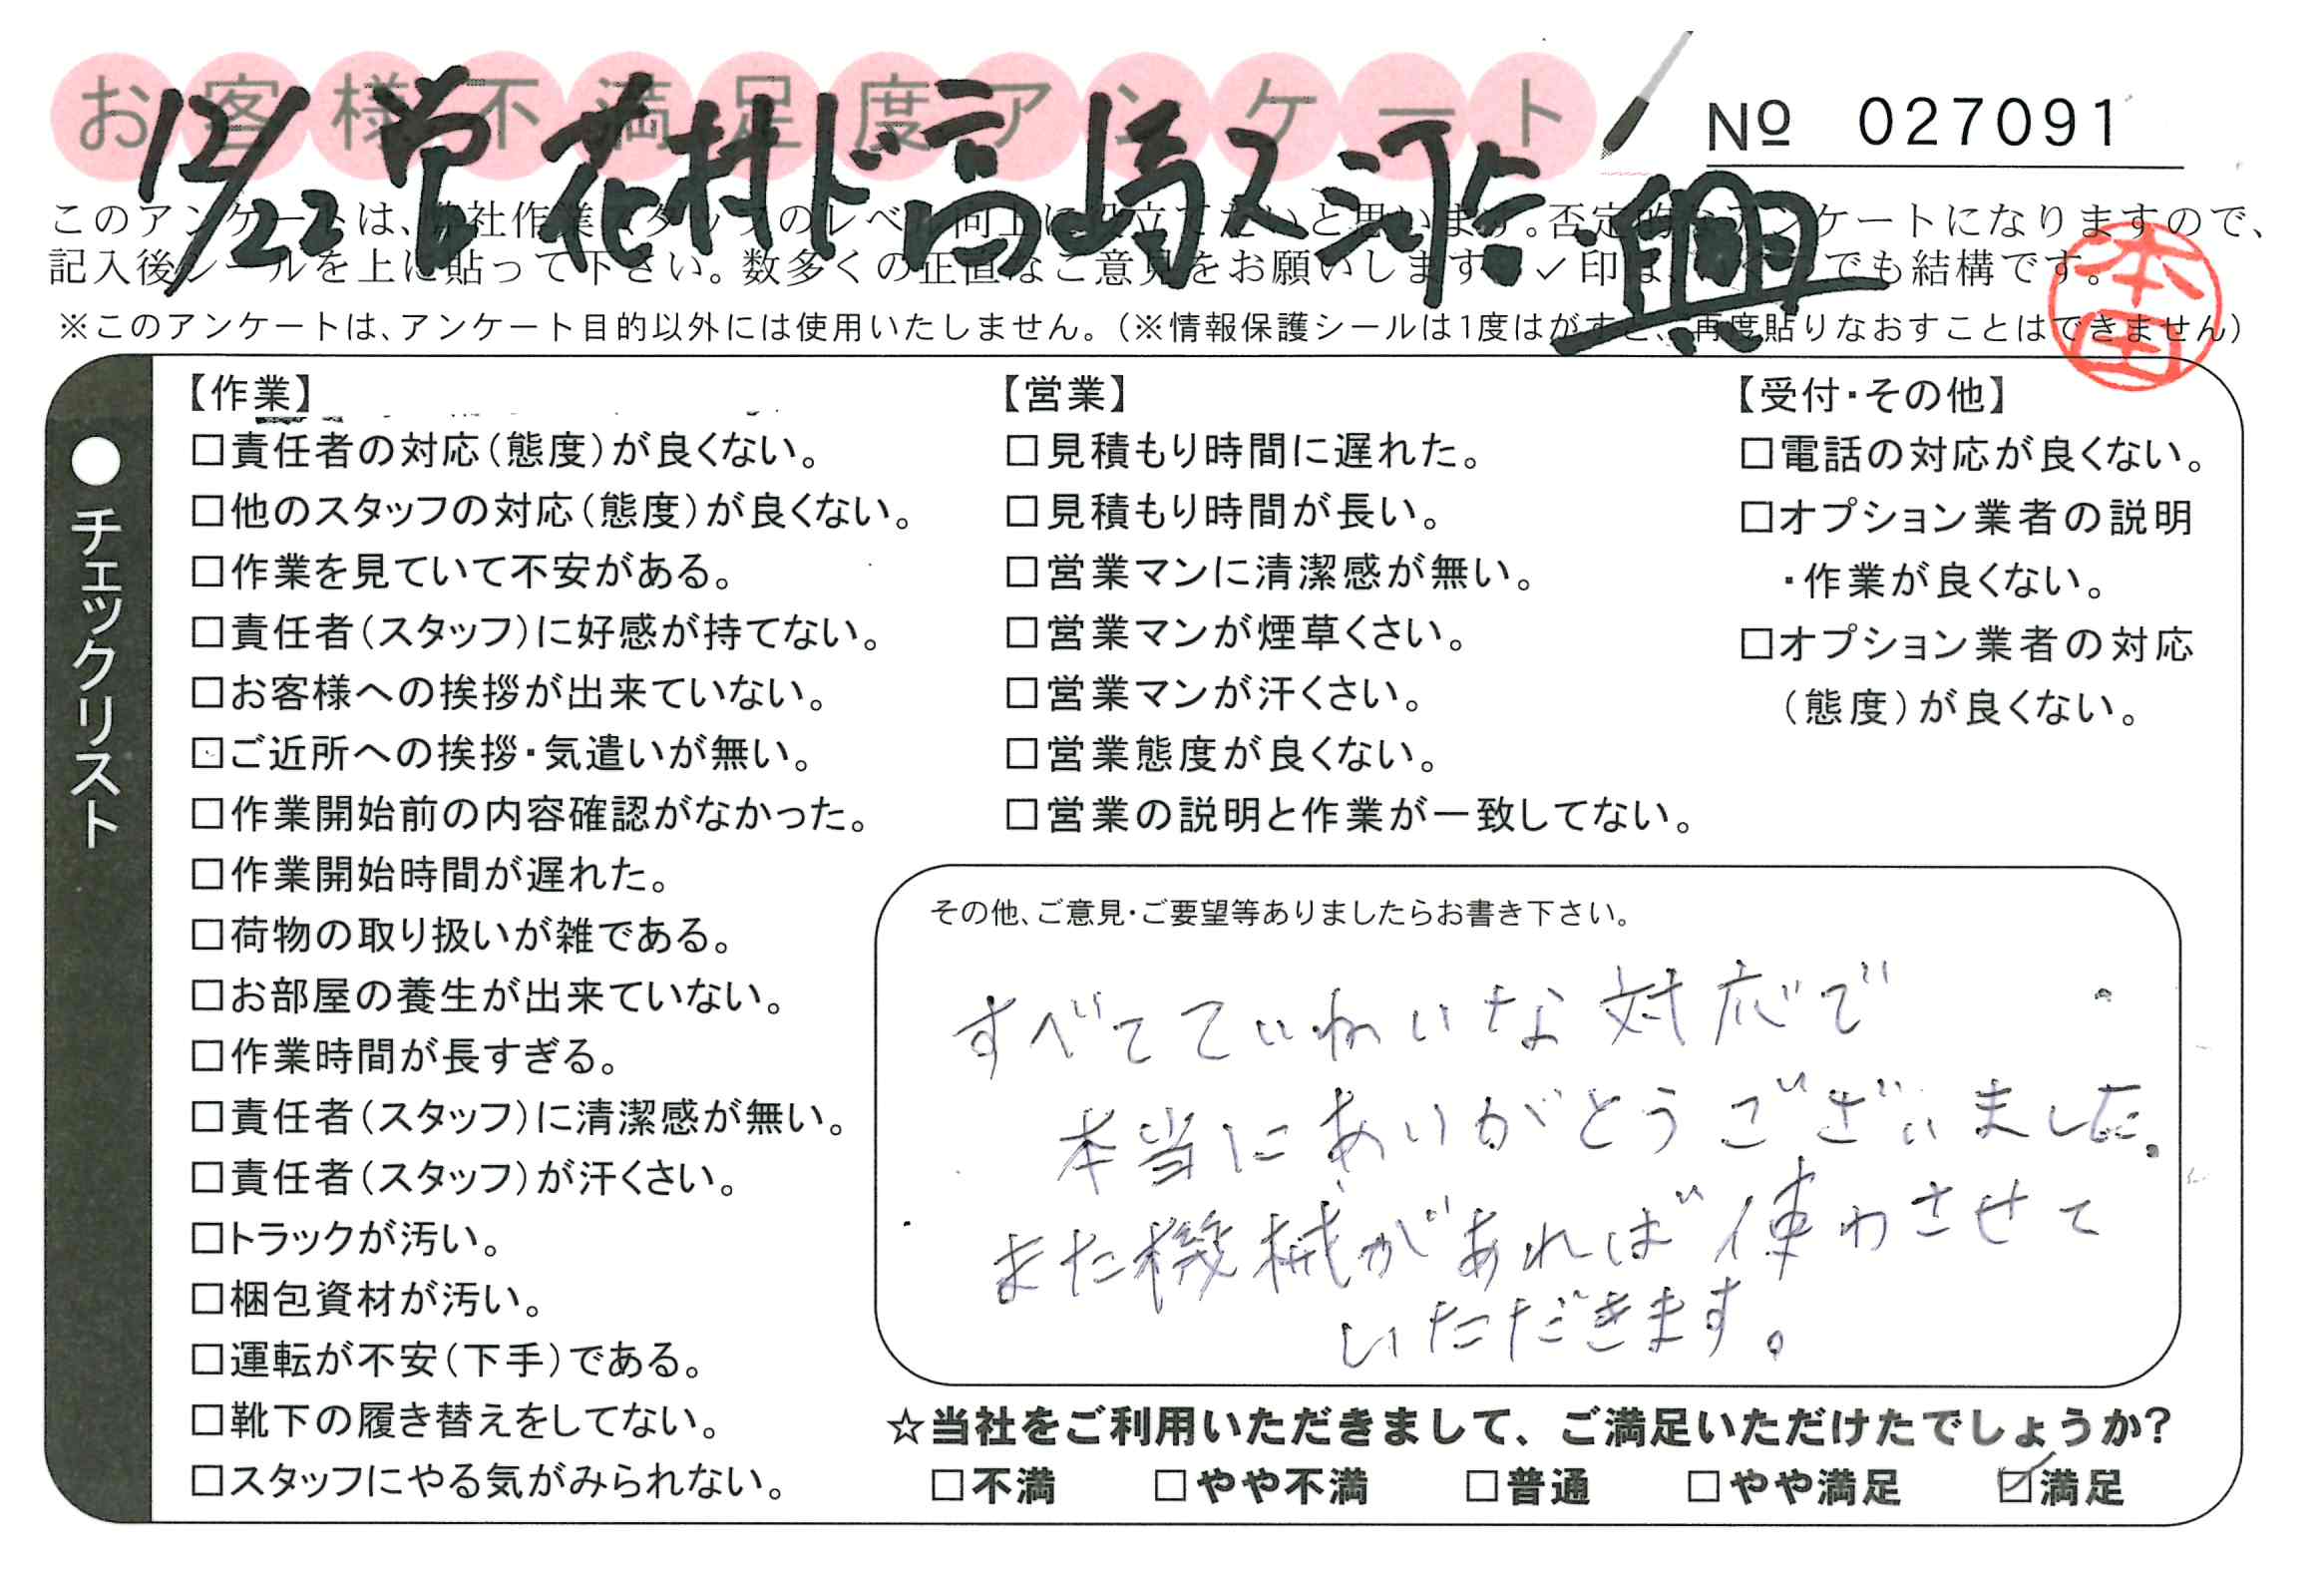 お客様不満足度アンケート
№ 027091
12/22 営 花村 ド高嶋 ス河合・興
このアンケートは、弊社作業スタッフのレベル向上に役立てたいと思います。否定的なアンケートになりますので、
記入後シールを上に貼って下さい。数多くの正直なご意見をお願いします。✓印は、いくつでも結構です。
※このアンケートは、アンケート目的以外には使用いたしません。(※情報保護シールは1度はがすと、再度貼りなおすことはできません)
本田
●チェックリスト
【作業】
□責任者の対応(態度)が良くない。
□他のスタッフの対応(態度)が良くない。
□作業を見ていて不安がある。
□責任者(スタッフ)に好感が持てない。
□お客様への挨拶が出来ていない。
□ご近所への挨拶・気遣いが無い。
□作業開始前の内容確認がなかった。
□作業開始時間が遅れた。
□荷物の取り扱いが雑である。
□お部屋の養生が出来ていない。
□作業時間が長すぎる。
□責任者(スタッフ)に清潔感が無い。
□責任者(スタッフ)が汗くさい。
□トラックが汚い。
□梱包資材が汚い。
□運転が不安(下手)である。
□靴下の履き替えをしてない。
□スタッフにやる気がみられない。
【営業】
□見積もり時間に遅れた。
□見積もり時間が長い。
□営業マンに清潔感が無い。
□営業マンが煙草くさい。
□営業マンが汗くさい。
□営業態度が良くない。
□営業の説明と作業が一致してない。
【受付・その他】
□電話の対応が良くない。
□オプション業者の説明
・作業が良くない。
□オプション業者の対応
(態度)が良くない。
その他、ご意見・ご要望等ありましたらお書き下さい。
すべてていねいな対応で
本当にありがとうございました。
また機械があれば使わさせて
いただきます。
☆当社をご利用いただきまして、ご満足いただけたでしょうか?
□不満 □やや不満 □普通 □やや満足 ☑満足